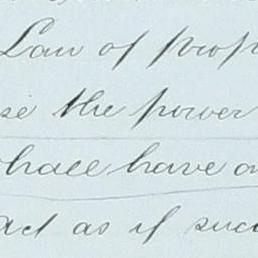 Law of prop
se the power
shall have
act as if suc